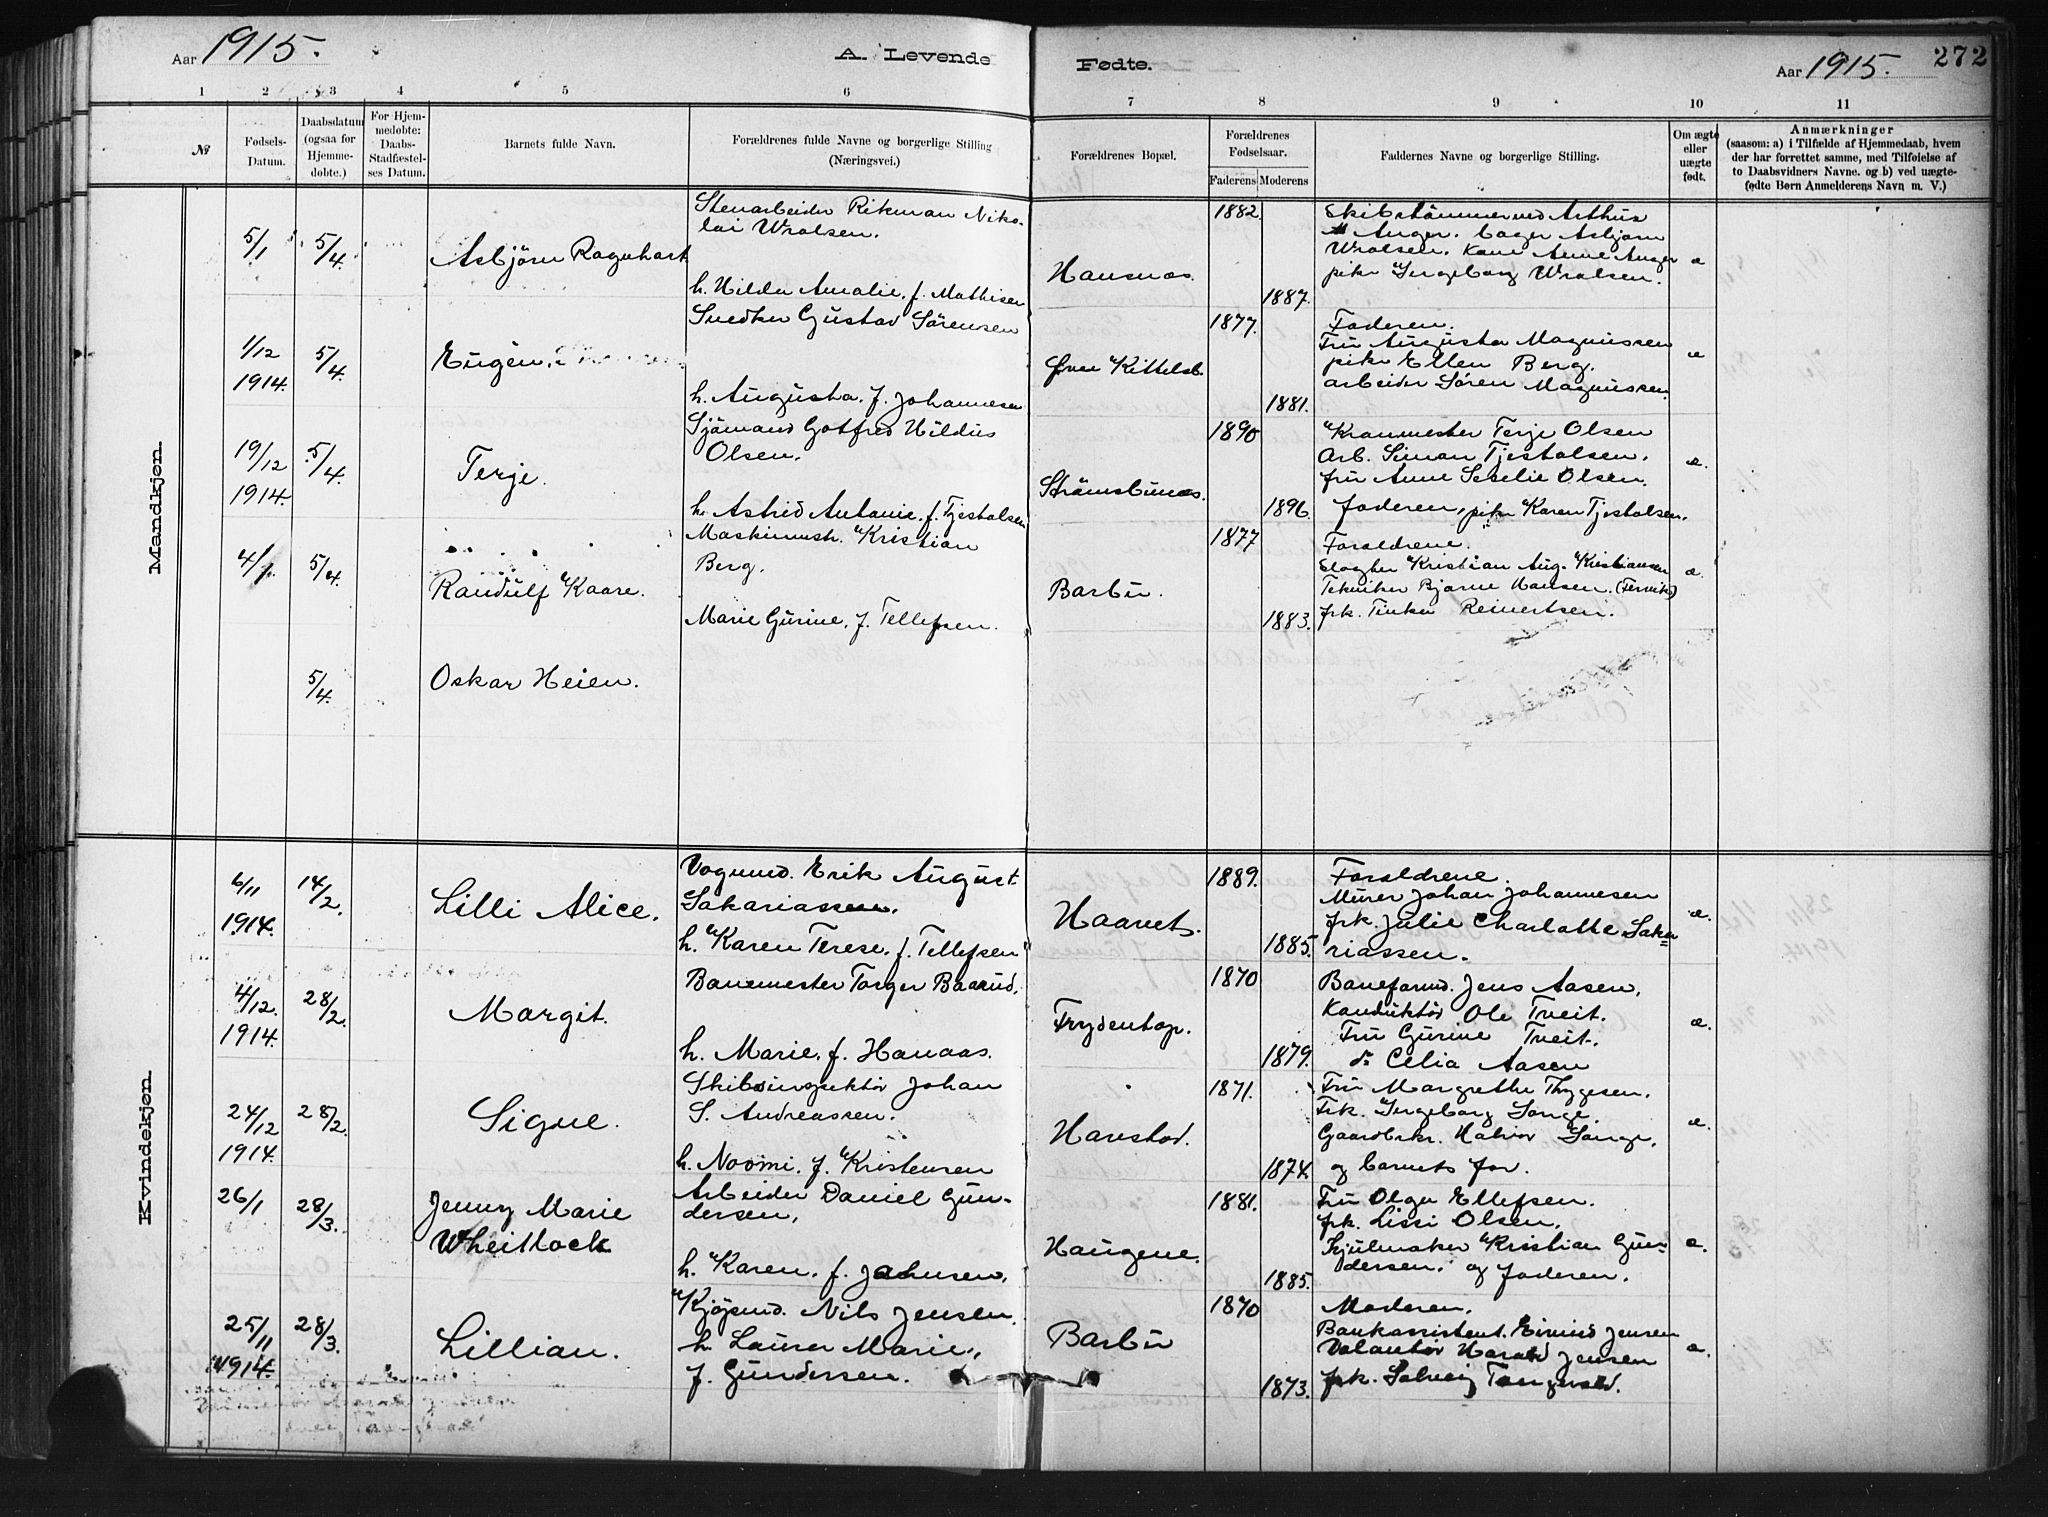 Aar 1915.
A. Levende Fødte.
Aar 1915.
272
1 2 3 4 5 6 7 8 9 10 11
№
Fødsels-
Datum.
Daabsdatum
(ogsaa for
Hjemme-
døbte.)
For Hjem-
medøbte:
Daabs-
Stadfæstel-
ses Datum.
Barnets fulde Navn.
Forældrenes fulde Navne og borgerlige Stilling
(Næringsvei.)
Forældrenes Bopæl.
Forældrenes
Fødselsaar.
Faderens Moderens
Faddernes Navne og borgerlige Stilling.
Om ægte
eller
uægte
født.
Anmærkninger
(saasom: a) i Tilfælde af Hjemmedaab, hvem
der har forrettet samme, med Tilføielse af
to Daabsvidners Navne. og b) ved uægte-
fødte Børn Anmelderens Navn m. V.)
Mandkjøn.
5/1 5/4
Asbjörn Ragnhart
Stenarbeider Rikman Niko-
lai Wralsen.
h. Hilda Amalie, f. Mathisen
Hansnæs.
1882.
1887.
Skibstömmermd Arthur
Anger. Bager Asbjørn
Wralsen. Kone Anne Anger
pike Ingeborg Wralsen.
æ
1/12
1914.
5/4
Eugén.
Snedker Gustav Sörensen
h. Augusta, f. Johannesen
Øvre Kittelsb.
1877.
1881.
Faderen.
Fru Augusta Magnussen
pike Ellen Berg.
arbeider Sören Magnussen.
æ
19/12
1914.
5/4
Terje.
Sjömand Gotfred Hildus
Olsen.
h. Astrid Antonie, f. Tjestolsen
Strömsbunæs.
1890
1896.
Kranmester Terje Olsen
Arb. Simon Tjestolsen.
fru Anne Seselie Olsen.
faderen, pike Karen Tjestolsen.
æ.
4/1 5/4.
Randulf Kaare.
Maskinmstr. Kristian
Berg.
Marie Gurine, f. Tellefsen.
Barbu.
1877
1883.
Foraldrene.
Slagter Kristian Aug. Kristiansen
Tekniker Bjarne Hansen. (Tervik)
frk. Tinka Reinertsen.
æ.
5/4.
Oskar Heien.
Kvindekjøn.
6/11
1914.
14/2.
Lilli Alice.
Vognmd. Erik August
Sakariassen.
h. Karen Terese, f. Tellefsen
Haavet.
1889.
1885.
Foraldrene.
Murer Johan Johannesen
frk. Julie Charlotte Saka-
riassen.
æ.
4/12.
1914.
28/2.
Margit.
Banemester Torger Baarud.
h. Marie, f. Hanaas.
Frydentop.
1870
1879.
Baneformd. Jens Aasen,
Konduktör Ole Tveit.
Fru Gurine Tveit.
do Celia Aasen
æ.
24/12
1914.
28/2.
Signe.
Skibsinspektör Johan
S. Andreassen.
h. Noomi, f. Kristensen
Havstad.
1871.
1874.
Fru Margrethe Thygesen.
Frk. Ingeborg Longe
Gaardbrkr. Halvor Longe,
og barnets far.
æ.
26/1 28/3.
Jenny Marie
Wheitlock
Arbeider Daniel Gun-
dersen,
h. Karen, f. Johnsen,
Haugene.
1881.
1885.
Fru Olga Ellefsen.
frk. Lissi Olsen.
Hjulmaker Kristian Gun-
dersen. og faderen.
æ.
25/11
1914.
28/3.
Lillian.
Kjøpmd. Nils Jensen.
h. Laura Marie,
f. Gundersen.
Barbu
1870
1873.
Moderen.
Bankassistent Eivind Jensen
Volontör Harald Jensen
frk. Solveig Tangevald.
æ.